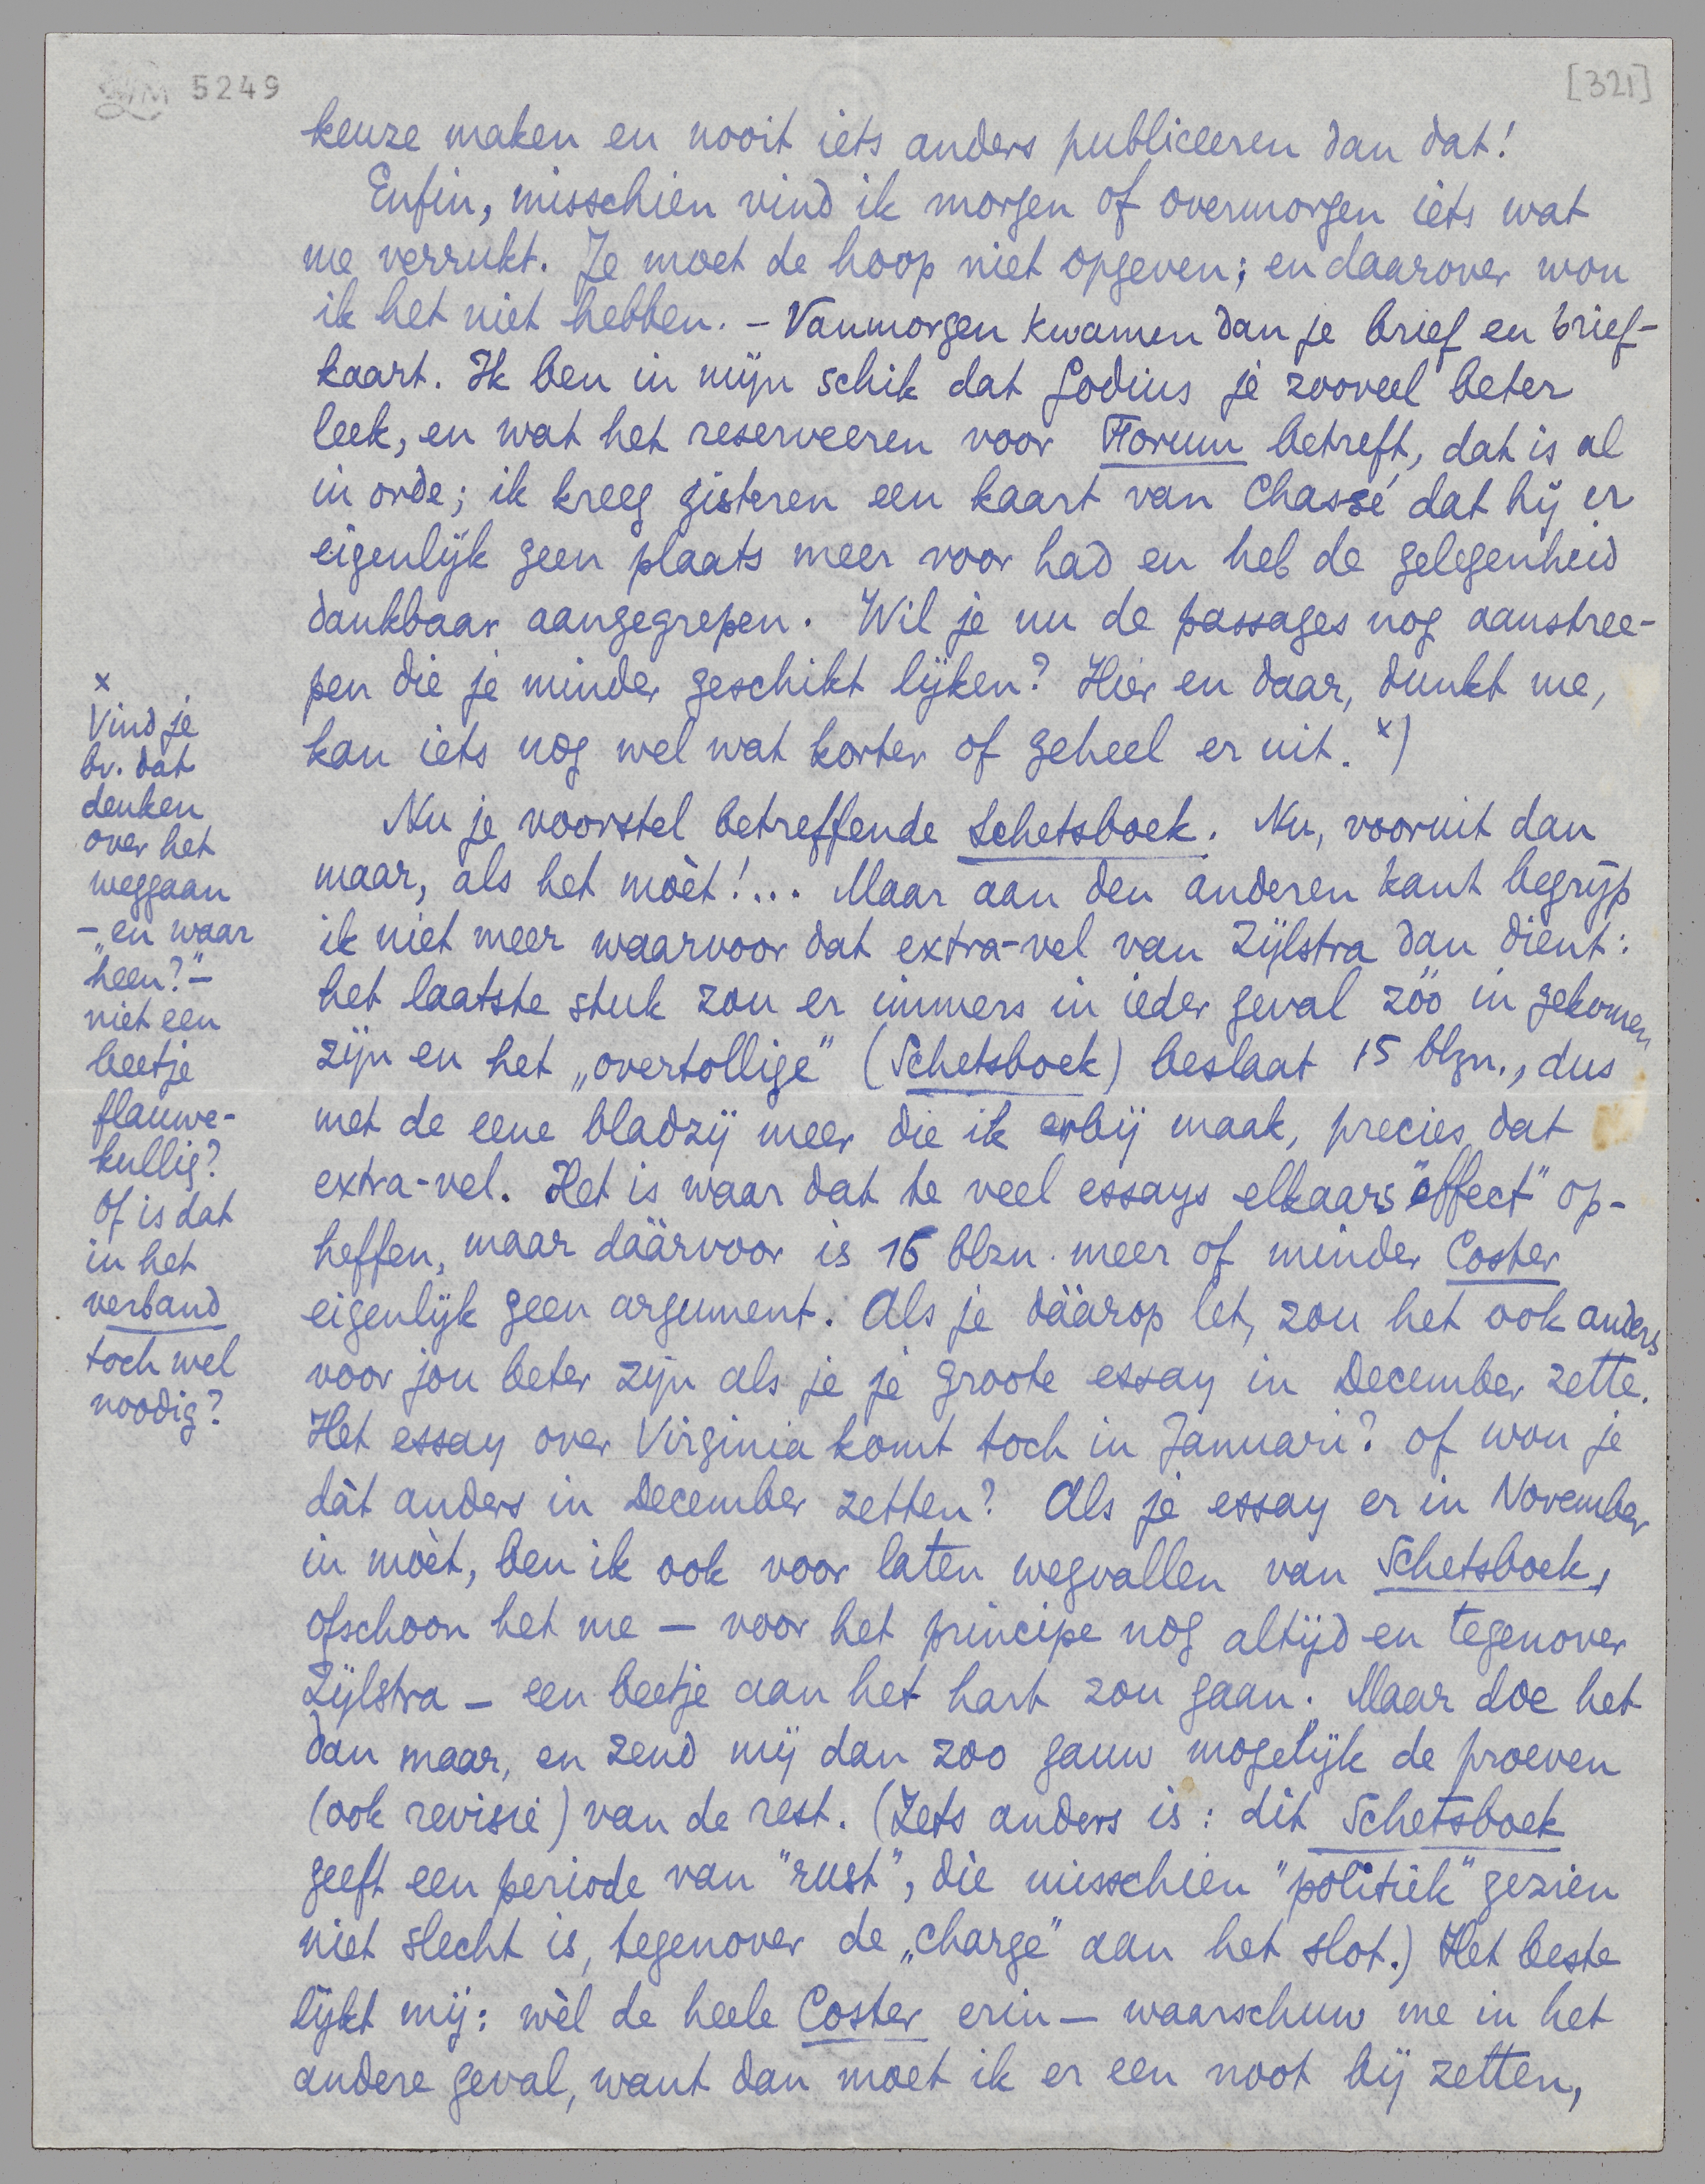 5249
[321]
keuze maken en nooit iets anders publiceeren dan dat!
Enfin, misschien vind ik morgen of overmorgen iets wat
me verrukt. Je moet de hoop niet opgeven; en daarover wou
ik het niet hebben. – Vanmorgen kwamen dan je brief en brief-
kaart. Ik ben in mijn schik dat Godius je zooveel beter
leek, en wat het reserveeren voor Forum betreft, dat is al
in orde; ik kreeg gisteren een kaart van Chassé dat hij er
eigenlijk geen plaats meer voor had en heb de gelegenheid
dankbaar aangegrepen. Wil je nu de passages nog aanstree-
pen die je minder geschikt lijken? Hier en daar, dunkt me,
kan iets nog wel wat korter of geheel er uit. x)
Nu je voorstel betreffende Schetsboek. Nu, vooruit dan
maar, als het mòèt!... Maar aan den anderen kant begrijp
ik niet meer waarvoor dat extra-vel van Zijlstra dan dient:
het laatste stuk zou er immers in ieder geval zóó in gekomen
zijn en het „overtollige" (Schetsboek) beslaat 15 blzn., dus
met de eene bladzij meer die ik erbij maak, precies dat
extra-vel. Het is waar dat te veel essays elkaars "effect" op-
heffen, maar dáárvoor is 16 blzn. meer of minder Coster
eigenlijk geen argument. Als je dáárop let, zou het ook anders
voor jou beter zijn als je je groote essay in December zette.
Het essay over Virginia komt toch in Januari? of wou je
dàt anders in December zetten? Als je essay er in November
in mòèt, ben ik ook voor laten wegvallen van Schetsboek,
ofschoon het me – voor het principe nog altijd en tegenover
Zijlstra – een beetje aan het hart zou gaan. Maar doe het
dan maar, en zend mij dan zoo gauw mogelijk de proeven
(ook revisie) van de rest. (Iets anders is: dit Schetsboek
geeft een periode van "rust", die misschien "politiek" gezien
niet slecht is, tegenover de „charge" aan het slot.) Het beste
lijkt mij: wèl de heele Coster erin – waarschuw me in het
andere geval, want dan moet ik er een noot bij zetten,
x
Vind je
bv. dat
denken
over het
weggaan
– „en waar
heen?" –
niet een
beetje
flauwe-
kullig?
Of is dat
in het
verband
toch wel
noodig?